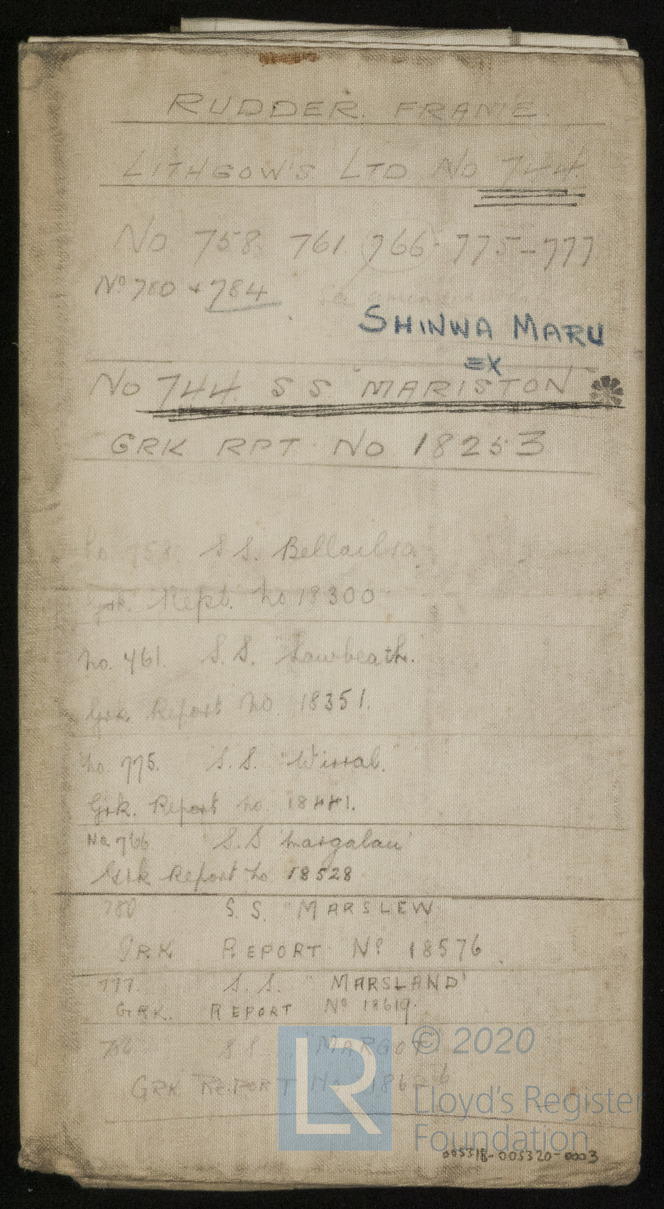 RUDDER. FRAME.
LITHGOW'S LTD NO 744.
NO 758. 761. 766. 775-777
Nº 780 + 784
SHINWA MARU
EX
NO 744. S S "MARISTON"
GRK RPT. NO 18253
No 758. S.S. Bellailsa
Grk. Rept. No 18300
No. 761. S.S. "Lawbeath".
Grk Report No 18351.
No. 775. S.S. "Wirral."
Grk. Report No. 18441.
No. 766 "S.S Margalau"
Grk Report No 18528
780 S.S. "MARSLEW
GRK REPORT Nº 18576.
777. S.S. "MARSLAND"
GRK. REPORT Nº 18619.
S S "MARGOT"
GRK REPORT No
LR
© 2020
Lloyd's Register
Foundation
005318-005320-0003